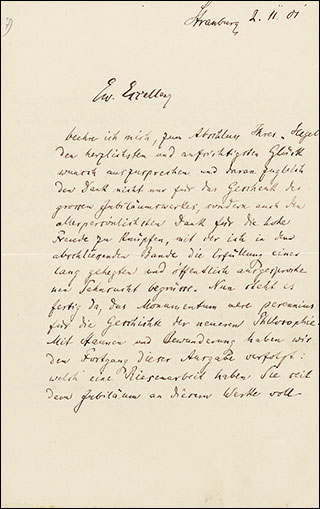 Strassburg 2. 11. 01
Ew. Excellenz
beehre ich mich, zum Abschluss Ihres Hegel
den herzlichsten und aufrichtigsten Glück
wunsch auszusprechen und daran zugleich
den Dank nicht nur für das Geschenk des
grossen Jubiläumswerkes, sondern auch den
allerpersönlichsten Dank für die hohe
Freude zu knüpfen, mit der ich in dem
abschliessenden Bande die Erfüllung einer
lang gehegten und öffentlich ausgesproche
nen Sehnsucht begrüsse. Nun steht es
fertig da, das Monumentum aere perennius
für die Geschichte der neueren Philosophie.
Mit Staunen und Bewunderung haben wir
den Fortgang dieser Ausgabe verfolgt:
welch eine Riesenarbeit haben Sie seit
dem Jubiläum an diesem Werke voll-